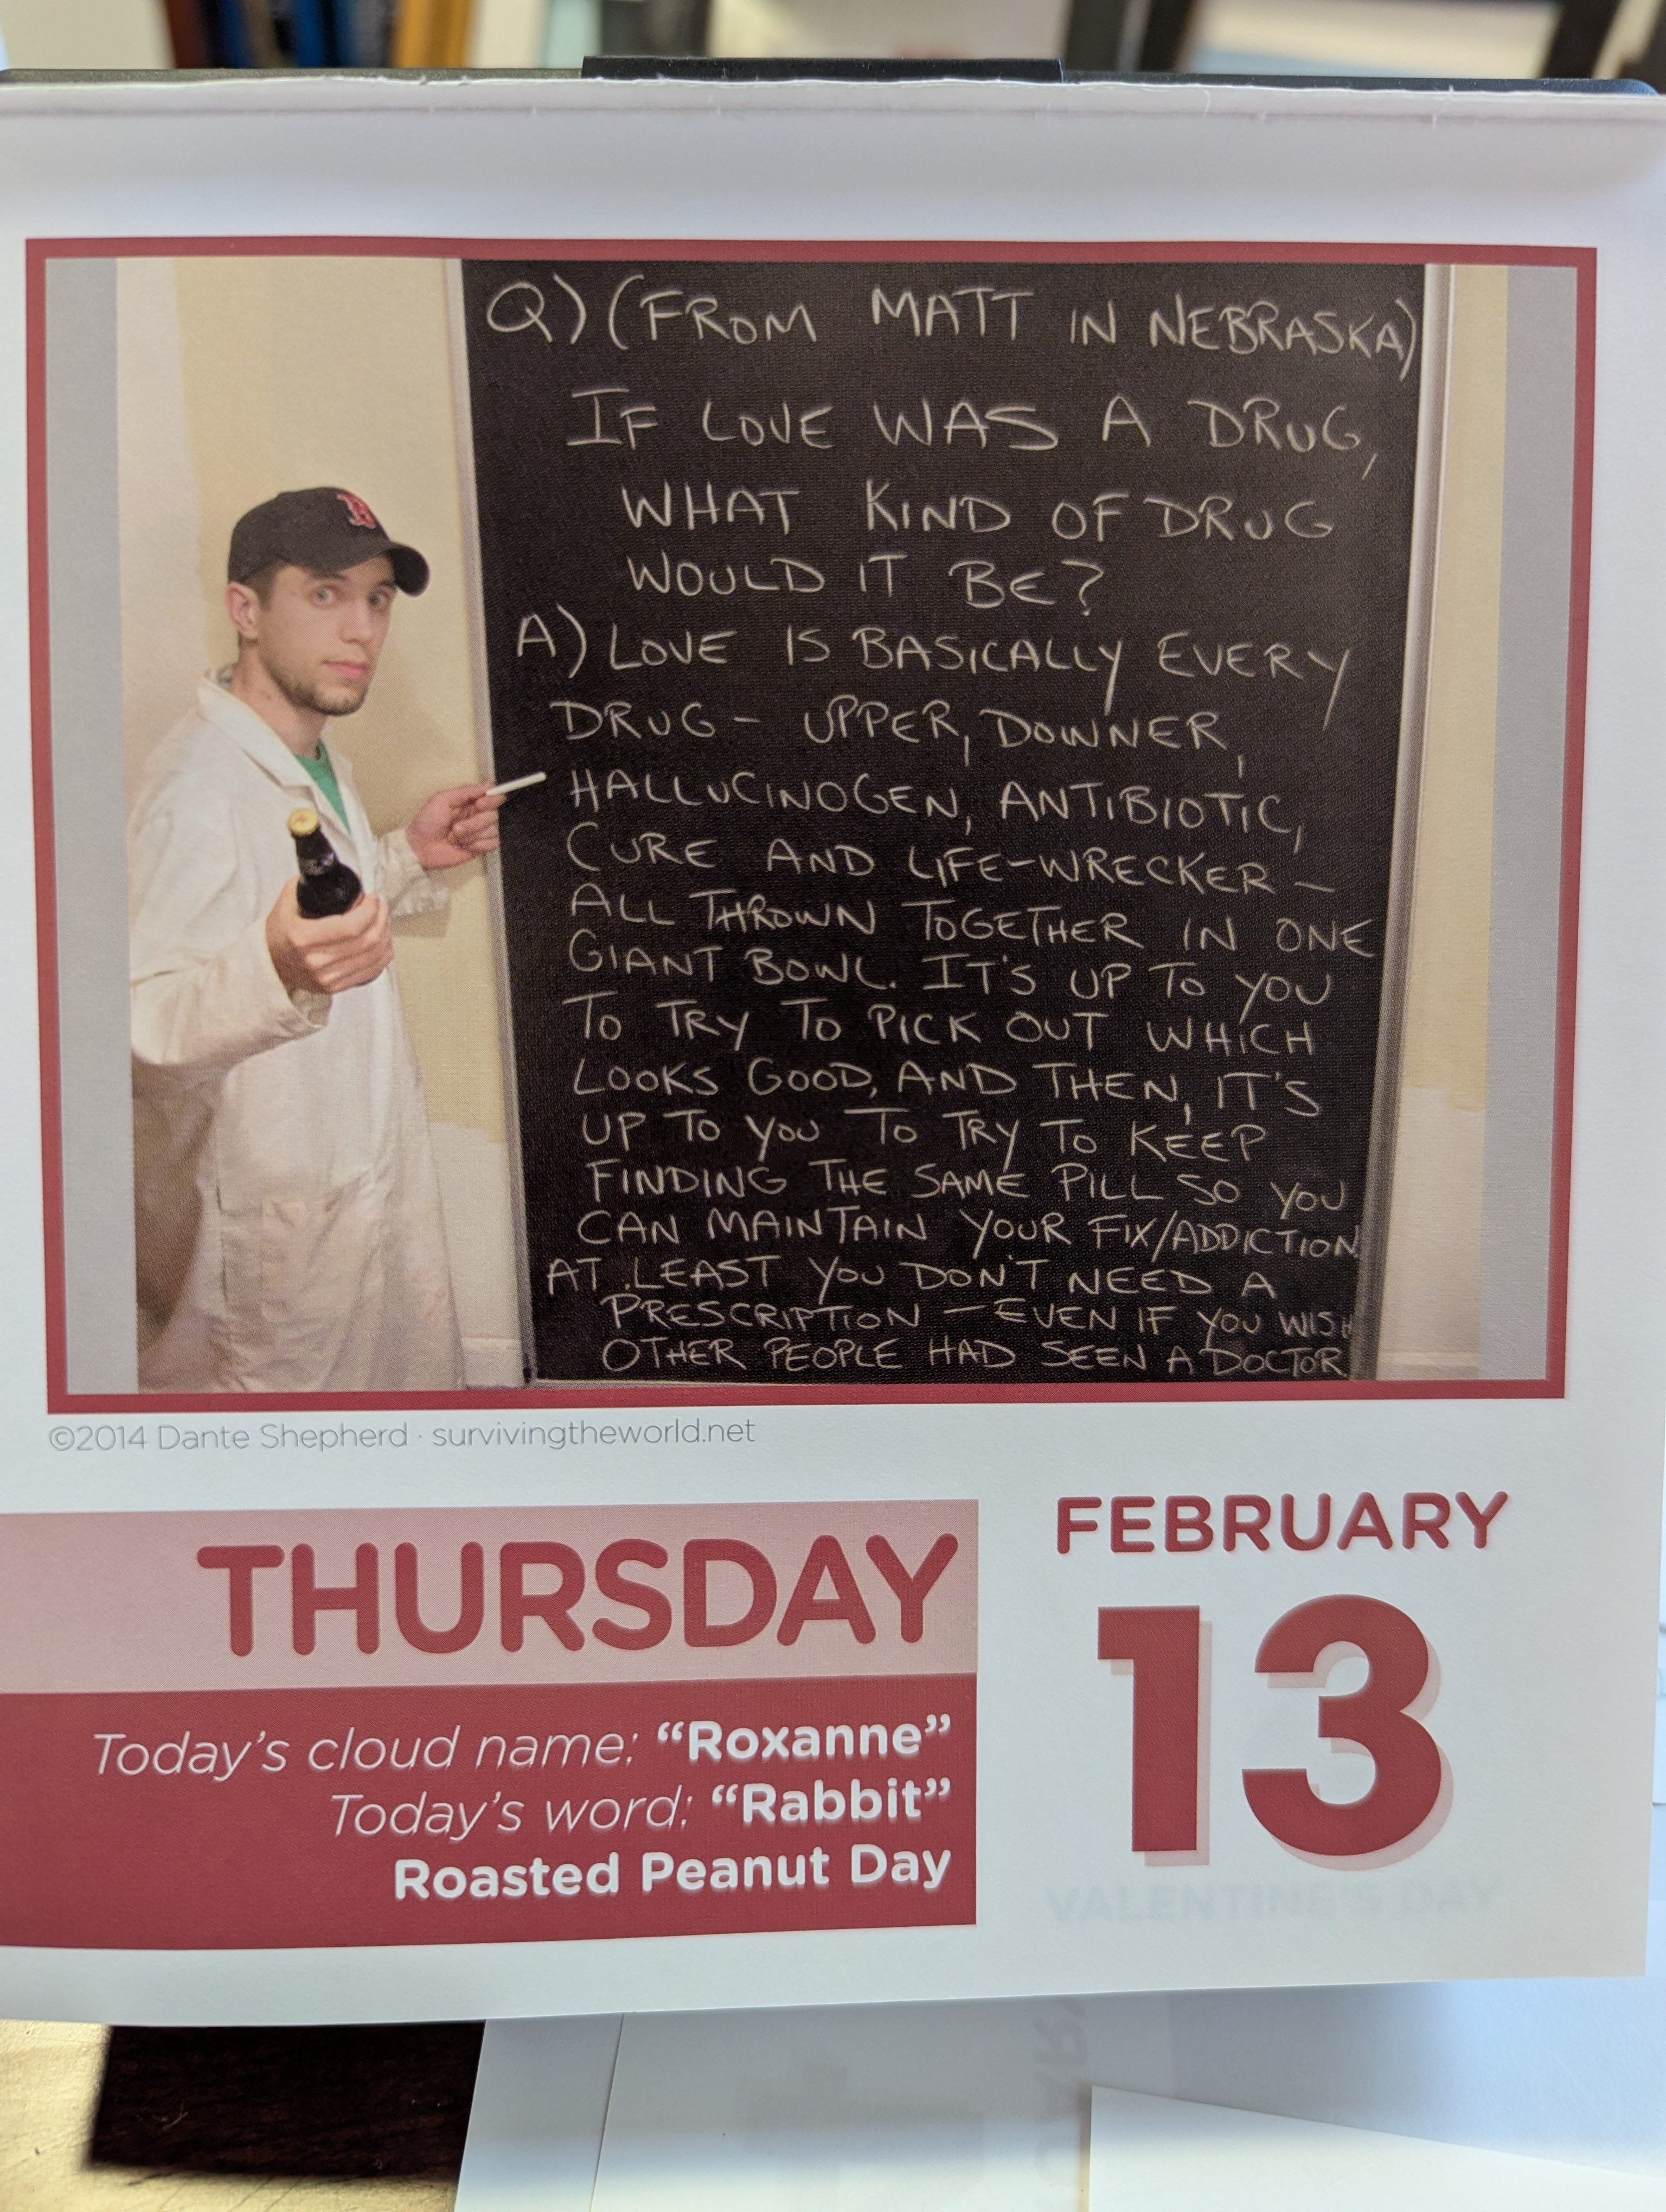 Q) (FROM MATT IN NEBRASKA)
IF LOVE WAS A DRUG,
WHAT KIND OF DRUG
WOULD IT BE?
A) LOVE IS BASICALLY EVERY
DRUG - UPPER, DOWNER,
HALLUCINOGEN, ANTIBIOTIC,
CURE AND LIFE-WRECKER -
ALL THROWN TOGETHER IN ONE
GIANT BOWL. IT'S UP TO YOU
TO TRY TO PICK OUT WHICH
LOOKS GOOD, AND THEN, IT'S
UP TO YOU TO TRY TO KEEP
FINDING THE SAME PILL SO YOU
CAN MAINTAIN YOUR FIX/ADDICTION.
AT LEAST YOU DON'T NEED A
PRESCRIPTION - EVEN IF YOU WISH
OTHER PEOPLE HAD SEEN A DOCTOR
©2014 Dante Shepherd · survivingtheworld.net
THURSDAY
FEBRUARY
13
Today's cloud name: "Roxanne"
Today's word: "Rabbit"
Roasted Peanut Day
VALENTINE'S DAY